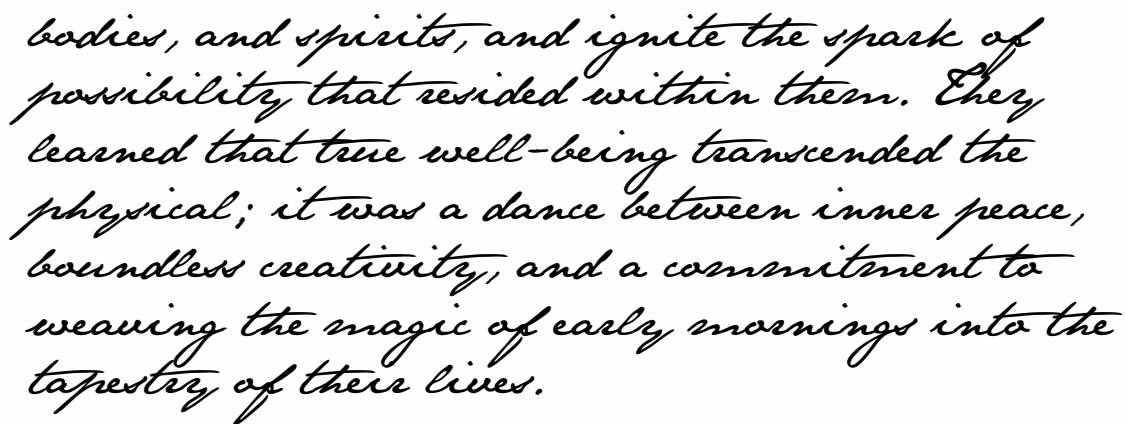 bodies, and spirits, and ignite the spark of
possibility that resided within them. They
learned that true well-being transcended the
physical; it was a dance between inner peace,
boundless creativity, and a commitment to
weaving the magic of early mornings into the
tapestry of their lives.